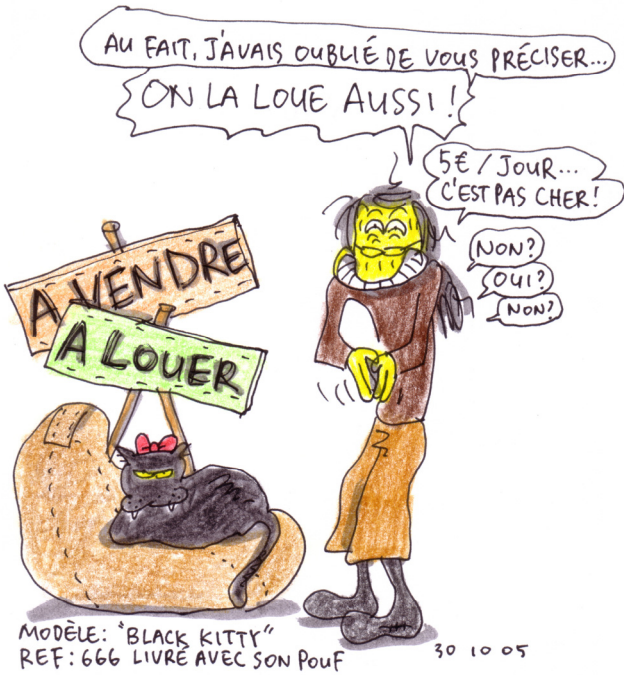 AU FAIT, J'AVAIS OUBLIÉ DE VOUS PRÉCISER...
ON LA LOUE AUSSI !
5€ / JOUR...
C'EST PAS CHER!
NON?
OUI?
NON?
A VENDRE
A LOUER
MODÈLE: "BLACK KITTY"
REF: 666 LIVRÉ AVEC SON POUF
30 10 05